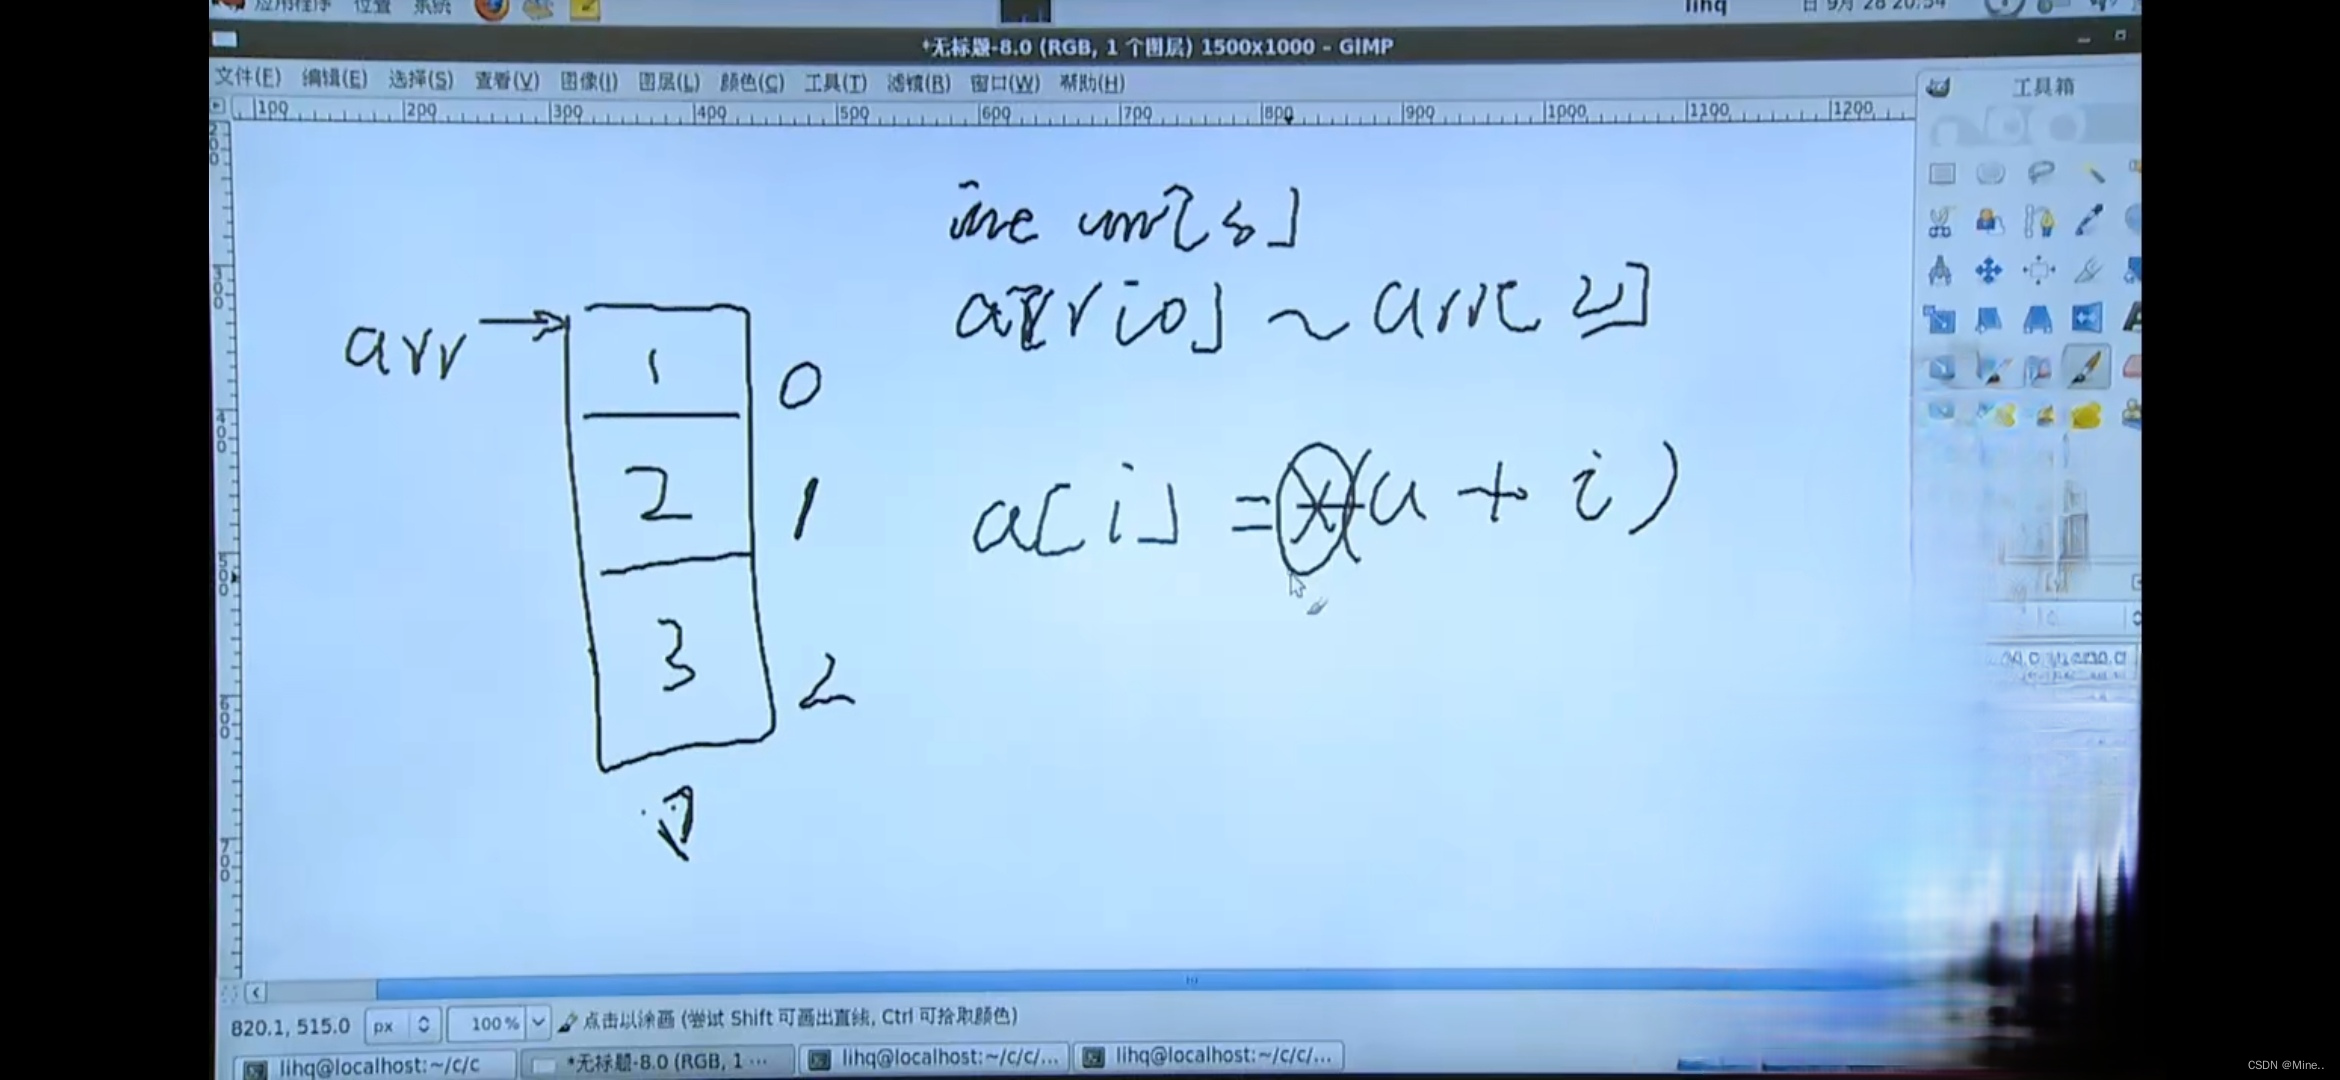 应用程序 位置 系统
lihq 日 9月 28 20:54
*无标题-8.0 (RGB, 1 个图层) 1500x1000 – GIMP
文件(F) 编辑(E) 选择(S) 查看(V) 图像(I) 图层(L) 颜色(C) 工具(T) 滤镜(R) 窗口(W) 帮助(H)
工具箱
100 200 300 400 500 600 700 800 900 1000 1100 1200
200
300
400
500
600
700
arr
1 0
2 1
3 2
arr[0] ~ arr[2]
a[i] = *(a + i)
820.1, 515.0 px 100% 点击以涂画 (尝试 Shift 可画出直线, Ctrl 可拾取颜色)
lihq@localhost:~/c/c *无标题-8.0 (RGB, 1 ··· lihq@localhost:~/c/c/... lihq@localhost:~/c/c/...
CSDN @Mine..